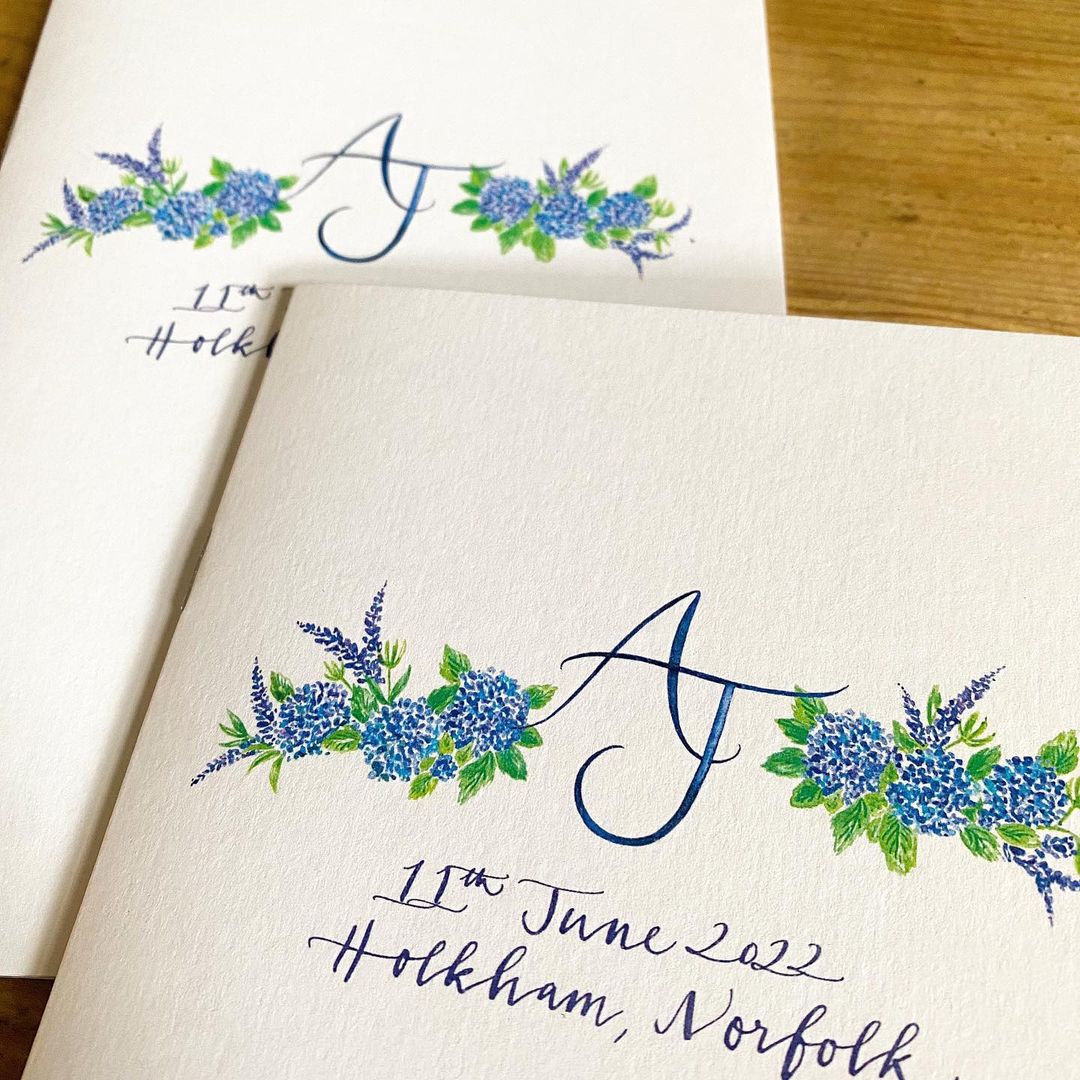 AJ
11th
AJ
11th June 2022
Holkham, Norfolk